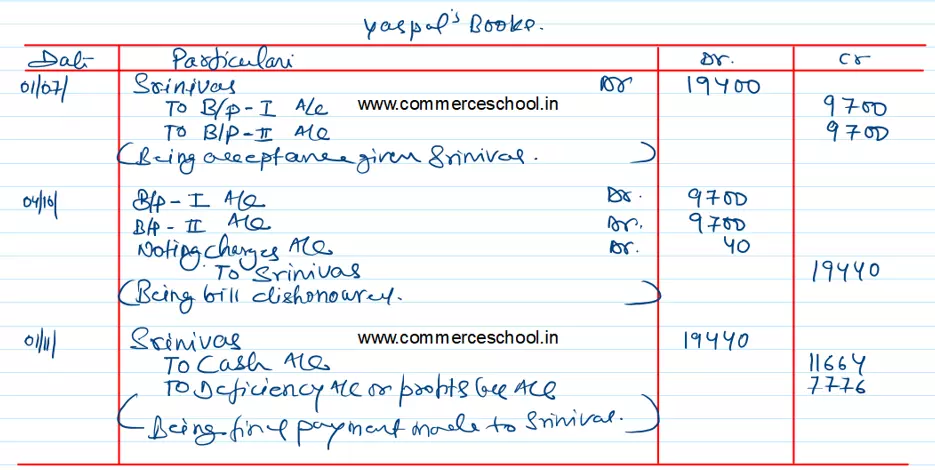 Yaspal's Books.
Date Particulars Dr. Cr
01/07/ Srinivas Dr 19400
To B/P-I A/c www.commerceschool.in 9700
To B/P-II A/c 9700
(Being acceptance given Srinivas.)
04/10/ B/p-I A/c Dr. 9700
B/P-II A/c Dr. 9700
Noting charges A/c Dr. 40
To Srinivas 19440
(Being bill dishonoured.)
01/11/ Srinivas www.commerceschool.in 19440
To Cash A/c 11664
To Deficiency A/c or profit & A/c 7776
(Being final payment made to Srinivas.)